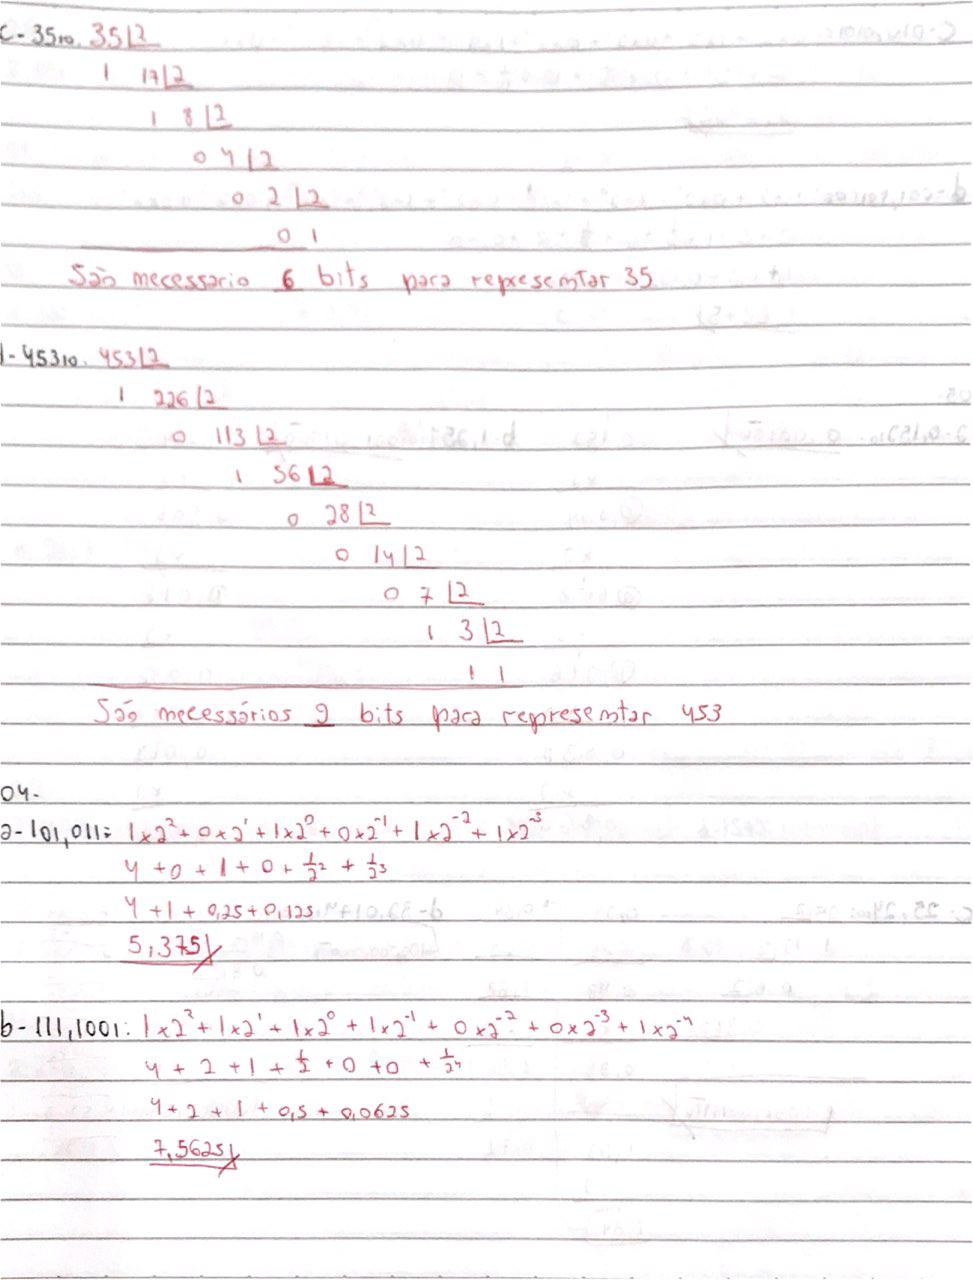 c-35₁₀. 35|2
1 17|2
1 8|2
0 4|2
0 2|2
0 1
São necessario 6 bits para representar 35
d-453₁₀. 453|2
1 226|2
0 113|2
1 56|2
0 28|2
0 14|2
0 7|2
1 3|2
1 1
São necessários 9 bits para representar 453
04-
a-101,011: 1x2² + 0x2¹ + 1x2⁰ + 0x2⁻¹ + 1x2⁻² + 1x2⁻³
4 + 0 + 1 + 0 + 1/2² + 1/2³
4 + 1 + 0,25 + 0,125
5,375
b-111,1001: 1x2² + 1x2¹ + 1x2⁰ + 1x2⁻¹ + 0x2⁻² + 0x2⁻³ + 1x2⁻⁴
4 + 2 + 1 + 1/2 + 0 + 0 + 1/2⁴
4 + 2 + 1 + 0,5 + 0,0625
7,5625